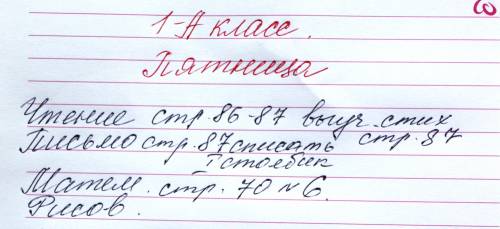 1-А класс.
Пятница
Чтение стр 86-87 выуч. стих
Письмо стр. 87 списать стр. 87
I столбик
Матем. стр. 70 № 6.
Рисов.